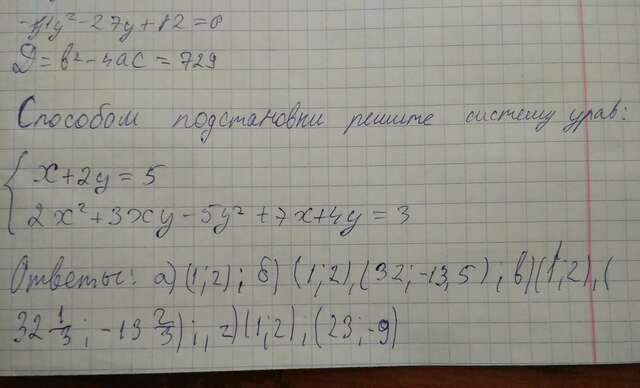 y² - 27y + 12 = 0
D = b² - 4ac = 729
Способом подстановки решите систему урав:
x + 2y = 5
2x² + 3xy - 5y² + 7x + 4y = 3
Ответы: а) (1; 2); б) (1; 2), (32; -13,5); в) (1; 2), (
32 1/3; -13 2/3); г) (1; 2); (23; -9)